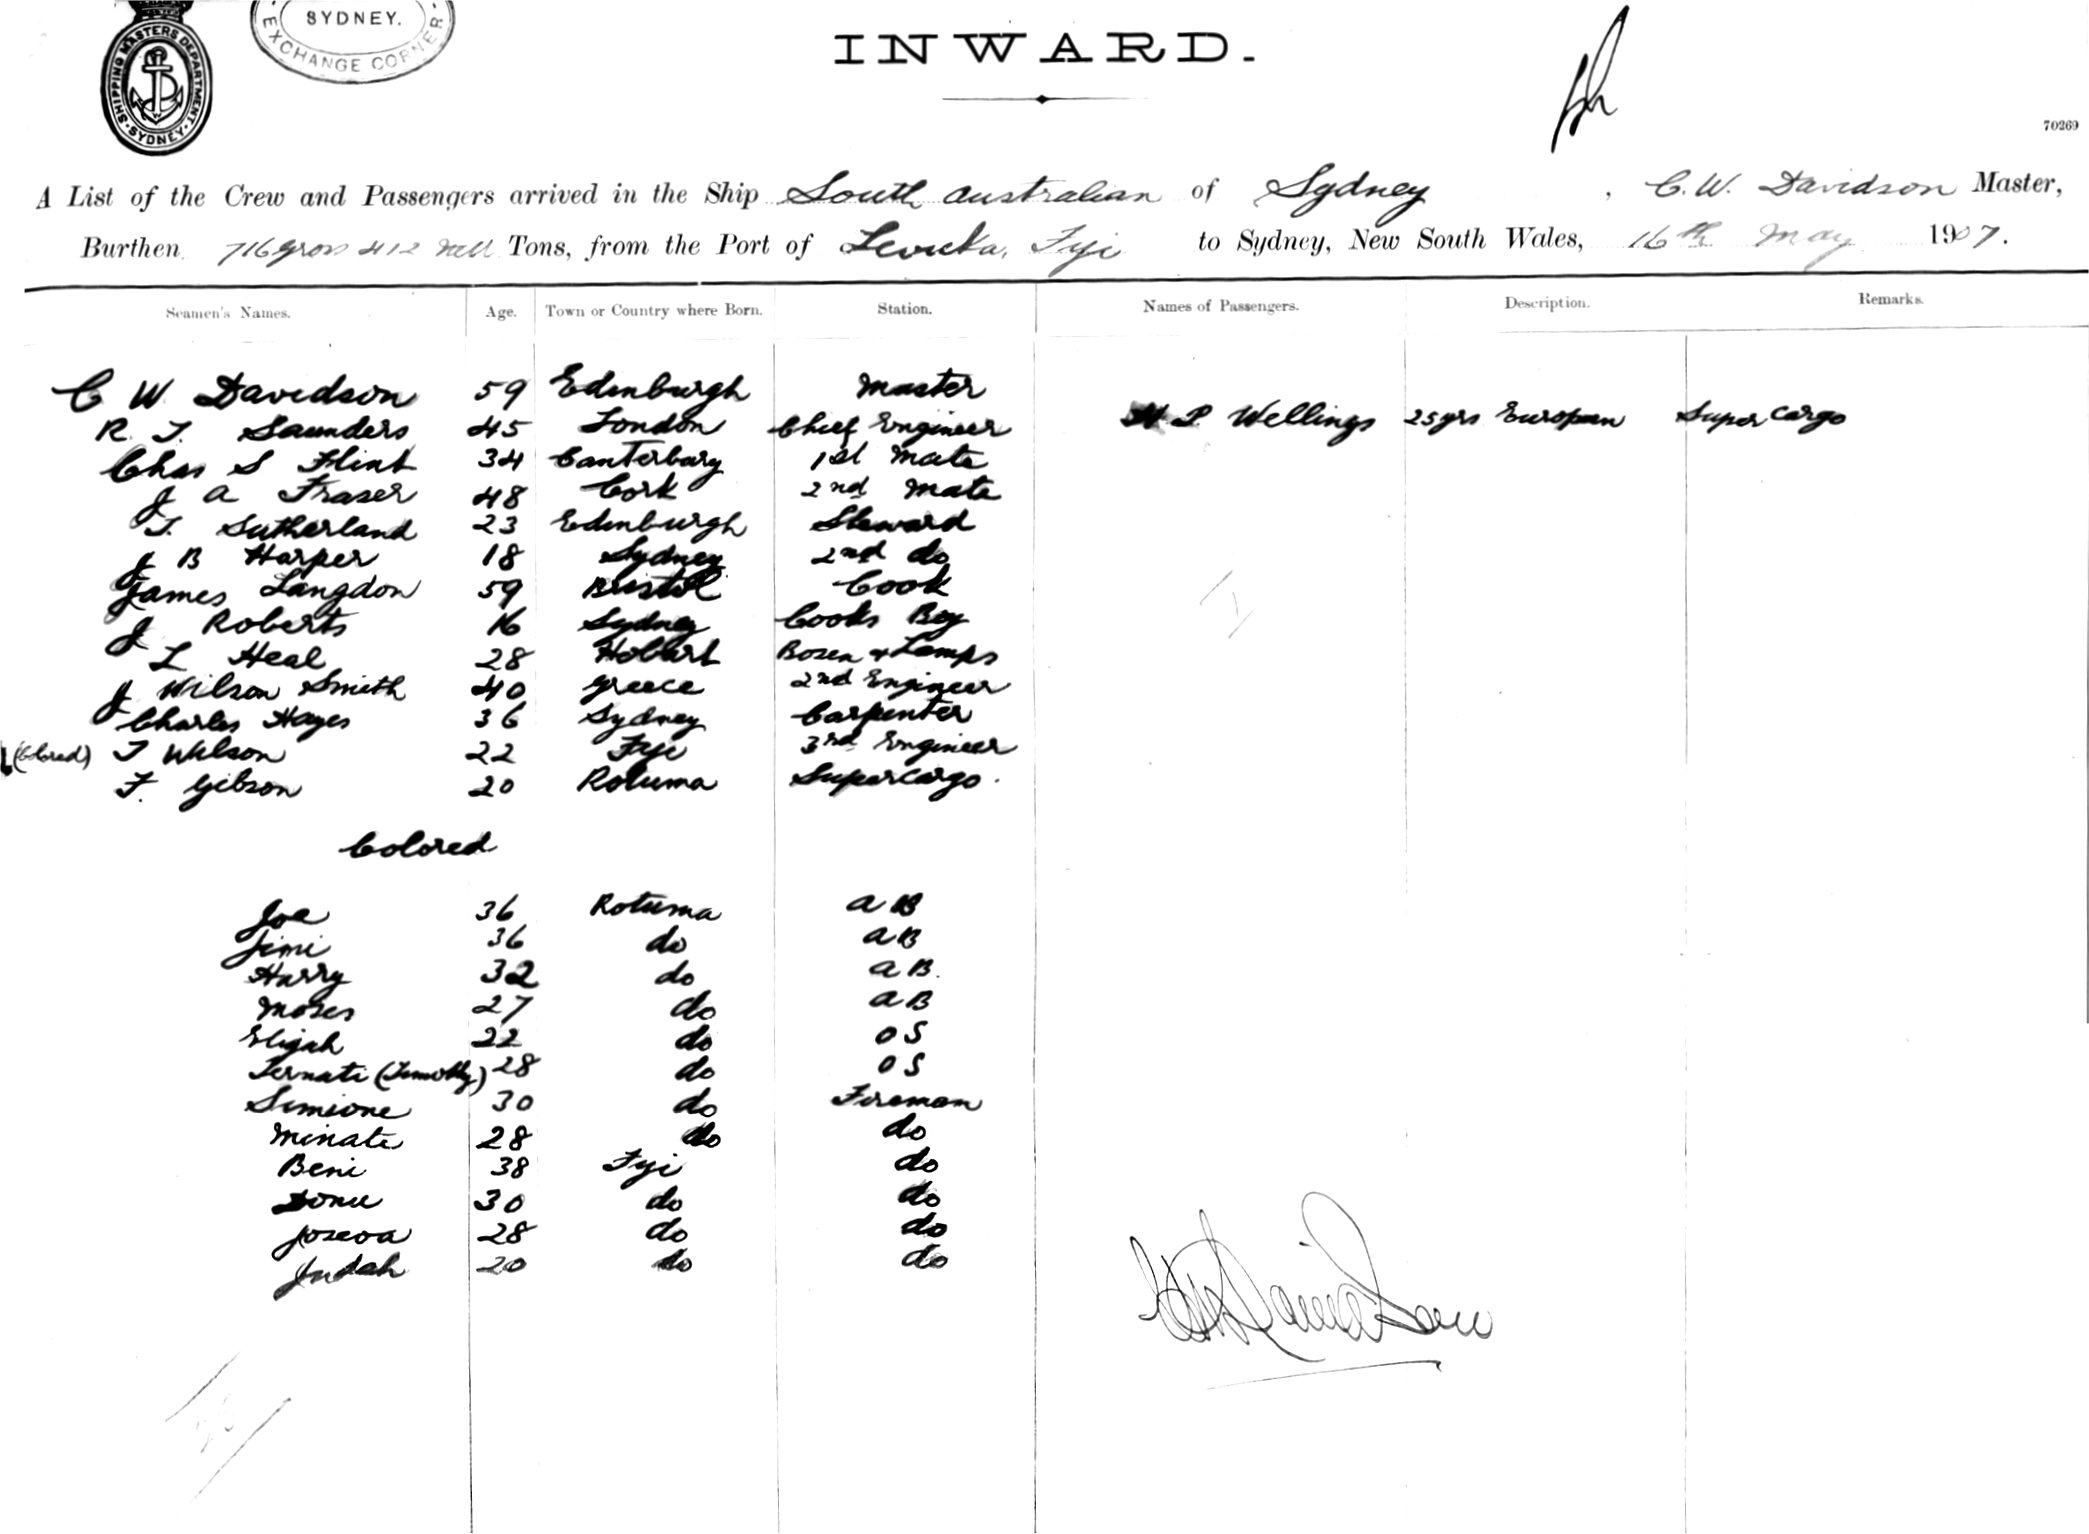 SHIPPING MASTERS DEPARTMENT. SYDNEY.
SYDNEY.
EXCHANGE CORNER
INWARD.
70269
A List of the Crew and Passengers arrived in the Ship South Australian of Sydney, C. W. Davidson Master,
Burthen 716 gross 412 nett Tons, from the Port of Levuka, Fiji to Sydney, New South Wales, 16th May 1907.
Seamen's Names. Age. Town or Country where Born. Station. Names of Passengers. Description. Remarks.
C W Davidson 59 Edinburgh Master
R. T. Saunders 45 London Chief Engineer P. Wellings 25 yrs European Super Cargo
Chas S Flint 34 Canterbury 1st Mate
J A Fraser 48 Cork 2nd Mate
T. Sutherland 23 Edinburgh Steward
J B Harper 18 Sydney 2nd do
James Langdon 59 Bristol Cook
J Roberts 16 Sydney Cooks Boy
L Heal 28 Hobart Bosen & Lamps
J Wilson Smith 40 Greece 2nd Engineer
Charles Hayes 36 Sydney Carpenter
(Colored) T Wilson 22 Fiji 3rd Engineer
F. Gibson 20 Rotuma Supercargo.
Colored
Joe 36 Rotuma A B
Jimi 36 do A B
Harry 32 do A B.
Moses 27 do A B
Elijah 22 do O S
(Timothy) 28 do O S
Simione 30 do Fireman
Minate 28 do do
Beni 38 Fiji do
30 do do
Joseva 28 do do
Judah 20 do do
C W Davidson